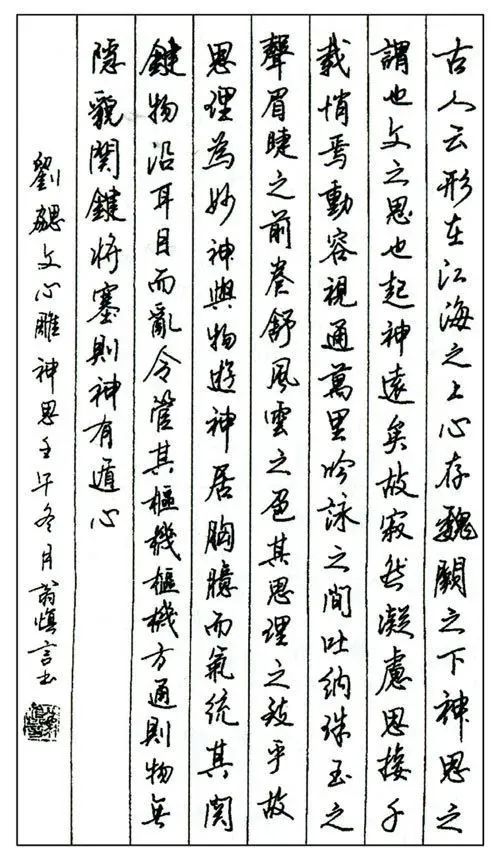 古人云形在江海之上心存魏闕之下神思之
謂也文之思也起神遠矣故寂然凝慮思接千
載悄焉動容視通萬里吟詠之間吐納珠玉之
聲眉睫之前卷舒風雲之色其思理之致乎故
思理為妙神與物遊神居胸臆而氣統其関
鍵物沿耳目而亂令管其樞機樞機方通則物無
隱貌関鍵將塞則神有遁心
劉勰文心雕神思壬午冬月翁慎言書